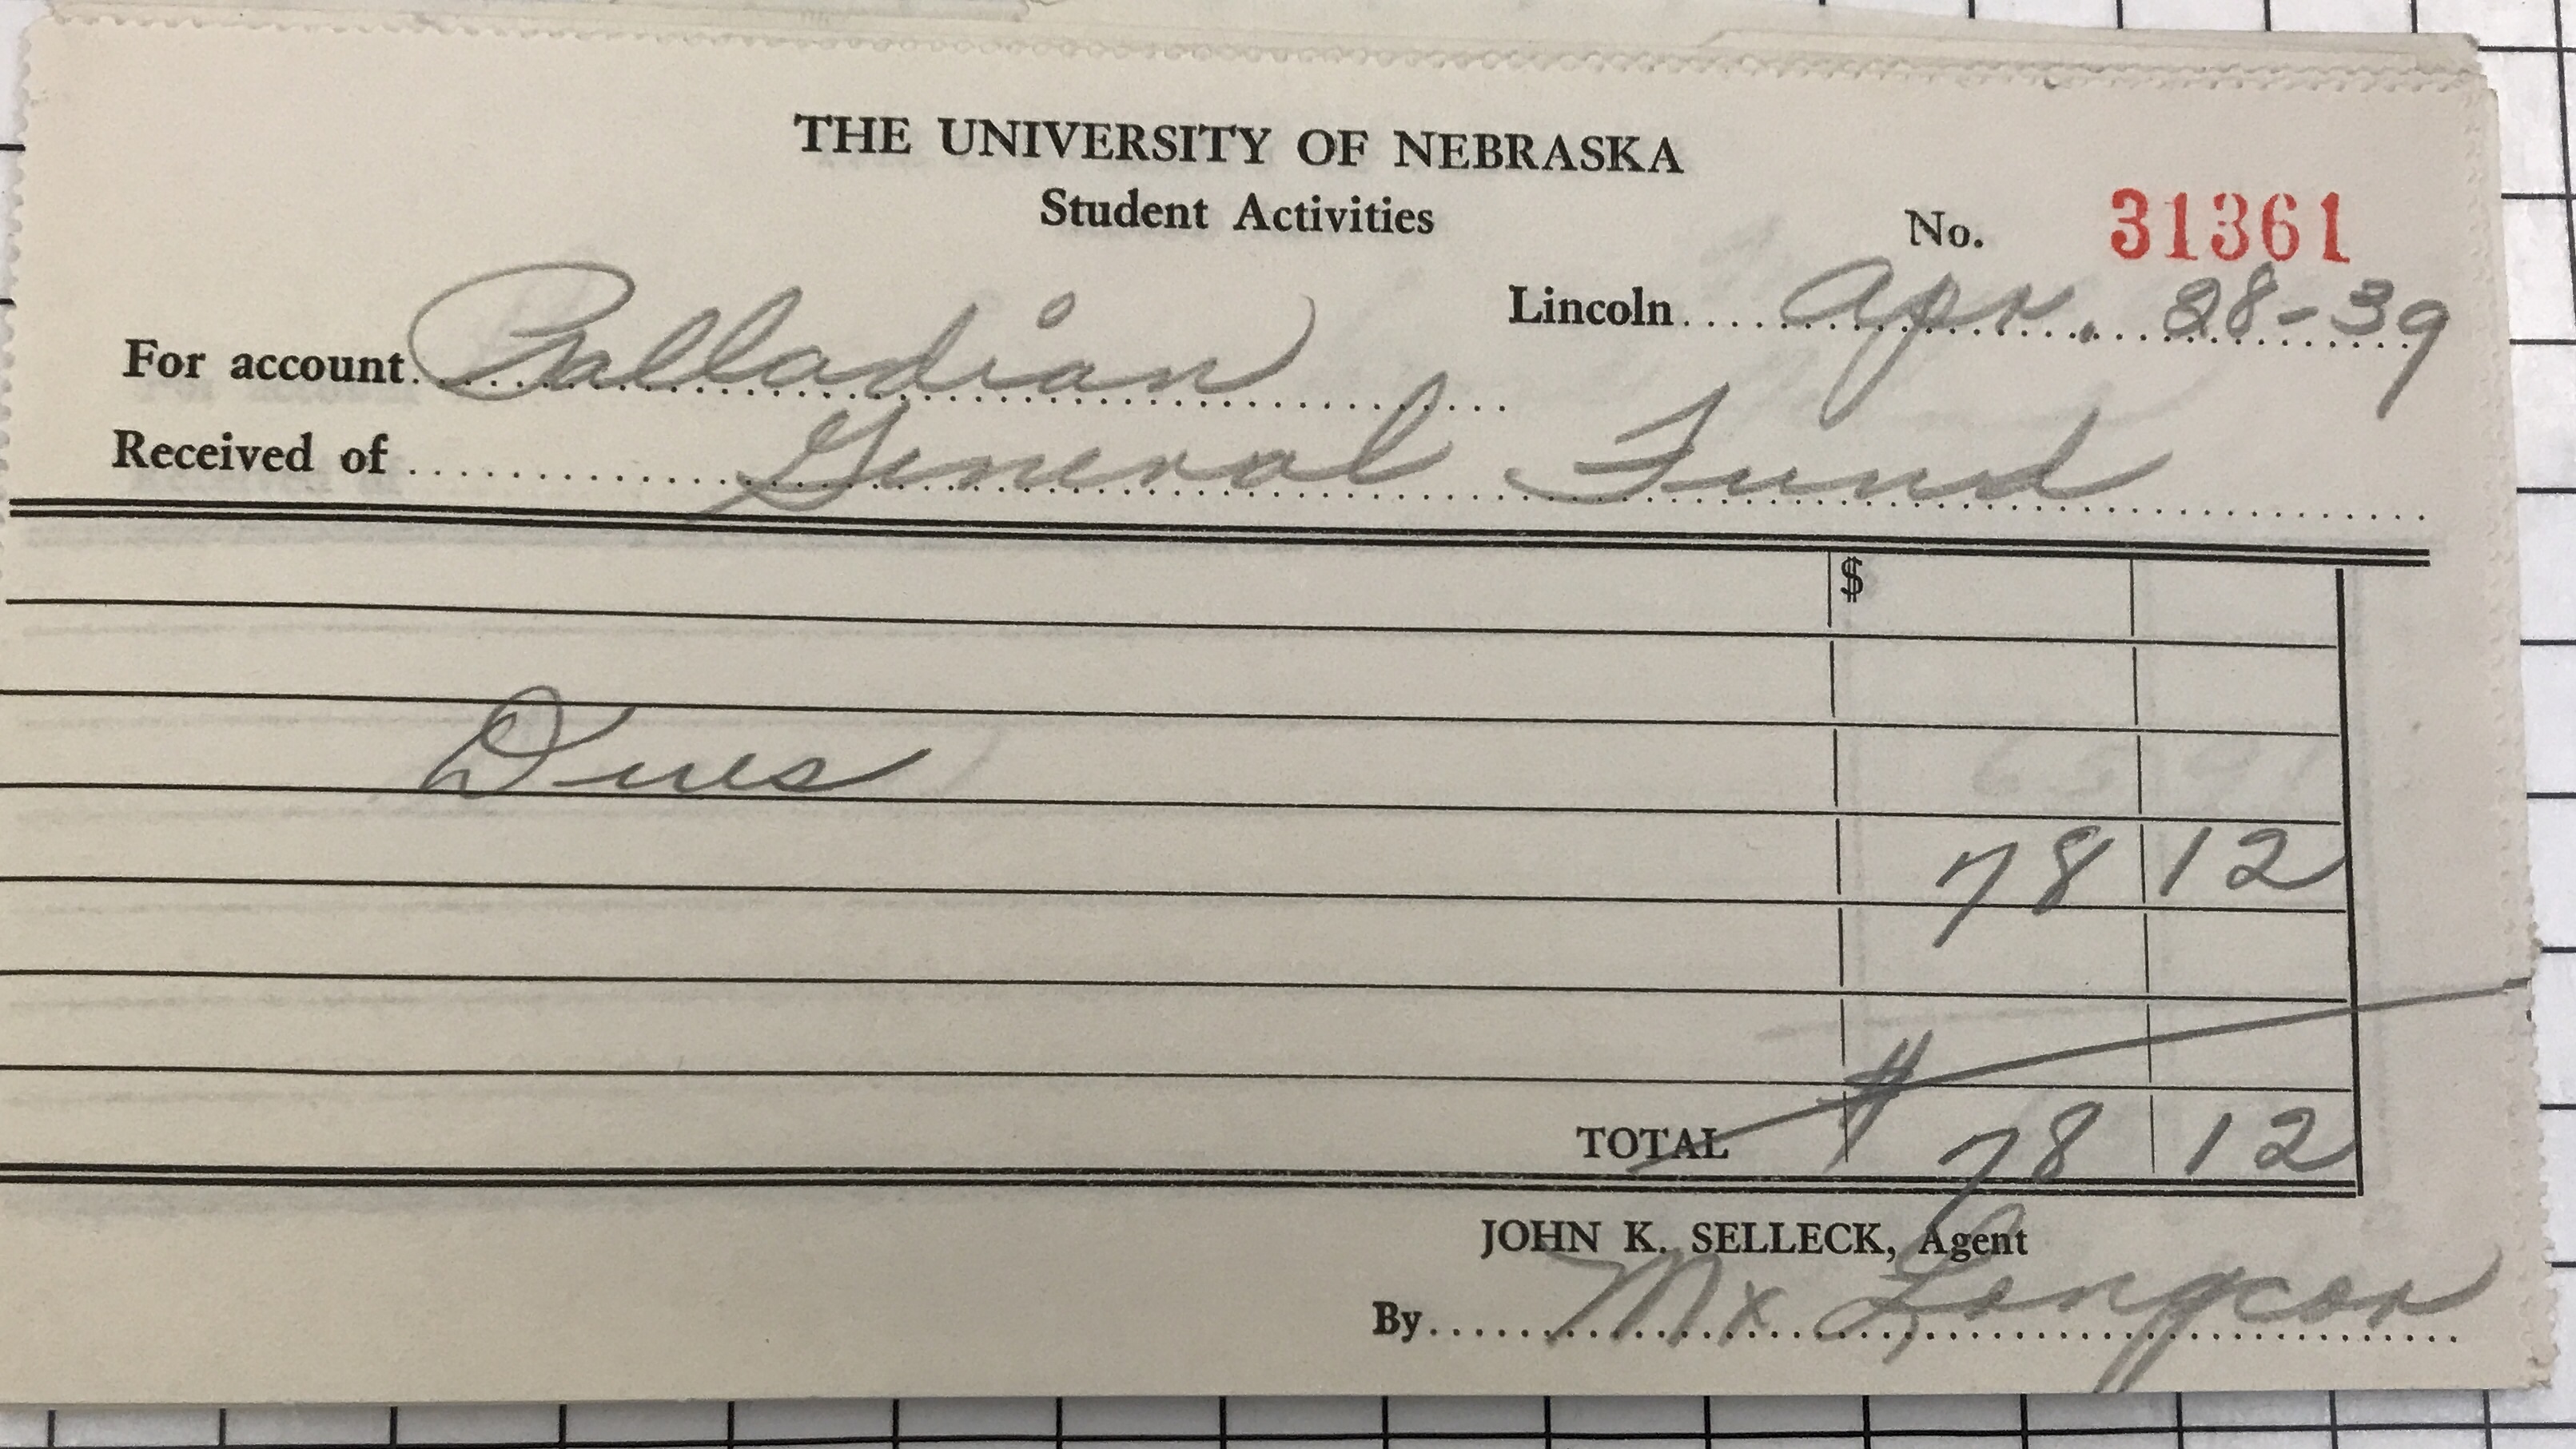 THE UNIVERSITY OF NEBRASKA
Student Activities
No. 31361
Lincoln Apr. 28-39
For account Palladian
Received of General Fund
$
Dues
78 12
TOTAL $ 78 12
JOHN K. SELLECK, Agent
By Mx Longcor